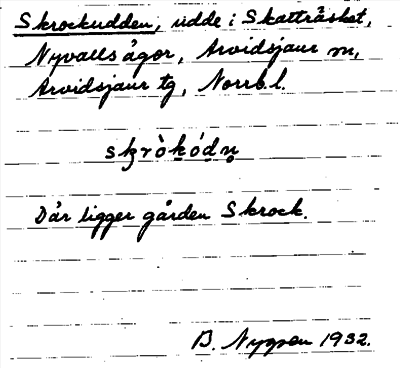 Skrockudden, udde i Skatträsket,
Nyvalls ägor, Arvidsjaur sn,
Arvidsjaur tg, Norrb. l.
skròkódn̥
Där ligger gården Skrock.
B. Nygren 1932.